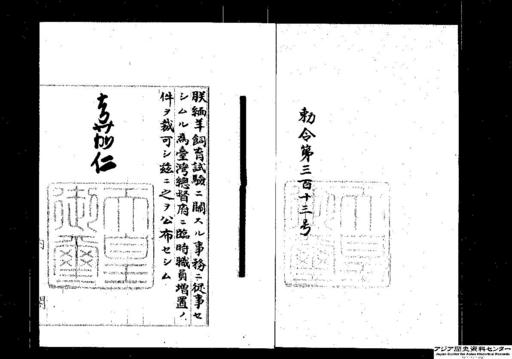 勅令第三百十三号
朕緬羊飼育試験ニ關スル事務ニ従事セ
シムル為臺灣總督府ニ臨時職員増置ノ
件ヲ裁可シ茲ニ之ヲ公布セシム
嘉仁
天皇
御璽
内閣
アジア歴史資料センター
Japan Center for Asian Historical Records